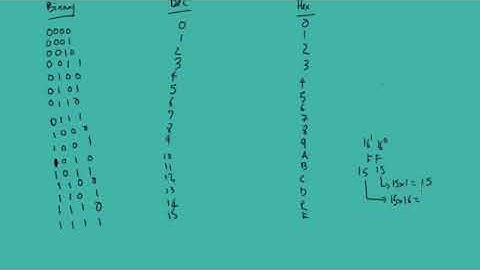 Binary Dec Hex
0000 0 0
0001 1 1
0010 2 2
0011 3 3
0100 4 4
0101 5 5
0110 6 6
0111 7 7
1000 8 8
1001 9 9
1010 10 A
1011 11 B
1100 12 C
1101 13 D
1110 14 E
1111 15 F
16¹ 16⁰
F F
15 15
15x1 = 15
15x16 =